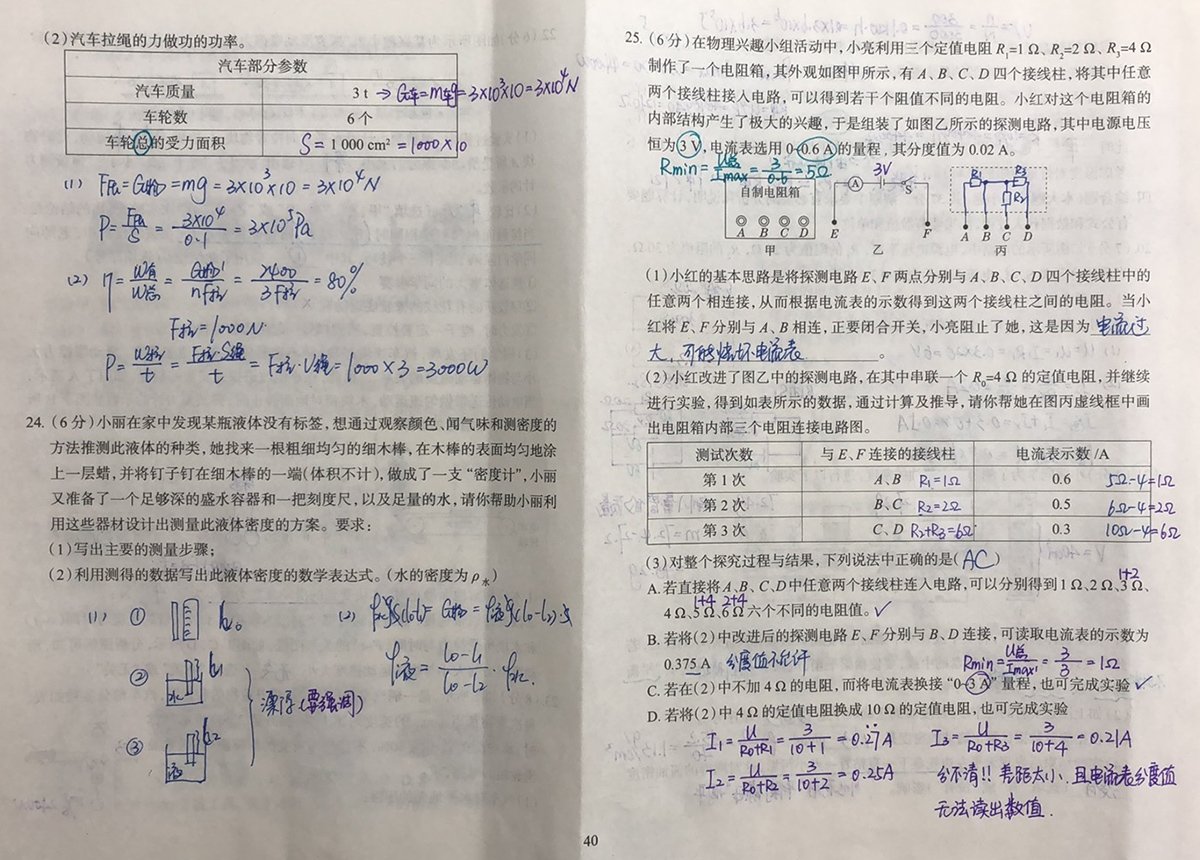 (2)汽车拉绳的力做功的功率。
汽车部分参数
汽车质量 3 t →G车=m车g=3×10³×10=3×10⁴N
车轮数 6 个
车轮总的受力面积 S=1 000 cm²=1000×10
(1) F压=G车=mg=3×10³×10=3×10⁴N
P=F压/S=3×10⁴/0.1=3×10⁵Pa
(2) η=W有/W总=G物h/nF拉=2400/3F拉=80%
F拉=1000N
P=W拉/t=F拉·S绳/t=F拉·V绳=1000×3=3000W
24.(6分)小丽在家中发现某瓶液体没有标签,想通过观察颜色、闻气味和测密度的
方法推测此液体的种类,她找来一根粗细均匀的细木棒,在木棒的表面均匀地涂
上一层蜡,并将钉子钉在细木棒的一端(体积不计),做成了一支“密度计”,小丽
又准备了一个足够深的盛水容器和一把刻度尺,以及足量的水,请你帮助小丽利
用这些器材设计出测量此液体密度的方案。要求:
(1)写出主要的测量步骤;
(2)利用测得的数据写出此液体密度的数学表达式。(水的密度为ρ水)
(1) ① l₀
② l₁ 水
③ l₂ 液
漂浮(要强调)
(2) ρ水gS(l₀-l₁)=G物=ρ液gS(l₀-l₂)
ρ液=l₀-l₁/l₀-l₂·ρ水
25.(6分)在物理兴趣小组活动中,小亮利用三个定值电阻 R₁=1 Ω、R₂=2 Ω、R₃=4 Ω
制作了一个电阻箱,其外观如图甲所示,有 A、B、C、D 四个接线柱,将其中任意
两个接线柱接入电路,可以得到若干个阻值不同的电阻。小红对这个电阻箱的
内部结构产生了极大的兴趣,于是组装了如图乙所示的探测电路,其中电源电压
恒为 3 V,电流表选用 0~0.6 A 的量程,其分度值为 0.02 A。
Rmin=U总/Imax=3/0.6=5Ω
自制电阻箱
A B C D
甲
A 3V S
E F
乙
R₁ R₃
R₂
A B C D
丙
(1)小红的基本思路是将探测电路 E、F 两点分别与 A、B、C、D 四个接线柱中的
任意两个相连接,从而根据电流表的示数得到这两个接线柱之间的电阻。当小
红将 E、F 分别与 A、B 相连,正要闭合开关,小亮阻止了她,这是因为 电流过
大,可能烧坏电流表 。
(2)小红改进了图乙中的探测电路,在其中串联一个 R₀=4 Ω 的定值电阻,并继续
进行实验,得到如表所示的数据,通过计算及推导,请你帮她在图丙虚线框中画
出电阻箱内部三个电阻连接电路图。
测试次数 与 E、F 连接的接线柱 电流表示数/A
第 1 次 A、B R₁=1Ω 0.6 5Ω-4=1Ω
第 2 次 B、C R₂=2Ω 0.5 6Ω-4=2Ω
第 3 次 C、D R₂+R₃=6Ω 0.3 10Ω-4=6Ω
(3)对整个探究过程与结果,下列说法中正确的是( AC )
1+2
A.若直接将 A、B、C、D 中任意两个接线柱连入电路,可以分别得到 1 Ω、2 Ω、3 Ω、
1+4 2+4
4 Ω、5 Ω、6 Ω 六个不同的电阻值。✓
B.若将(2)中改进后的探测电路 E、F 分别与 B、D 连接,可读取电流表的示数为
0.375 A 分度值不允许
Rmin=U总/Imax=3/3=1Ω
C.若在(2)中不加 4 Ω 的电阻,而将电流表换接“0~3 A”量程,也可完成实验 ✓
D.若将(2)中 4 Ω 的定值电阻换成 10 Ω 的定值电阻,也可完成实验
I₁=U/R₀+R₁=3/10+1=0.27A I₃=U/R₀+R₃=3/10+4=0.21A
I₂=U/R₀+R₂=3/10+2=0.25A 分不清!! 差距太小.且电流表分度值
无法读出数值.
40